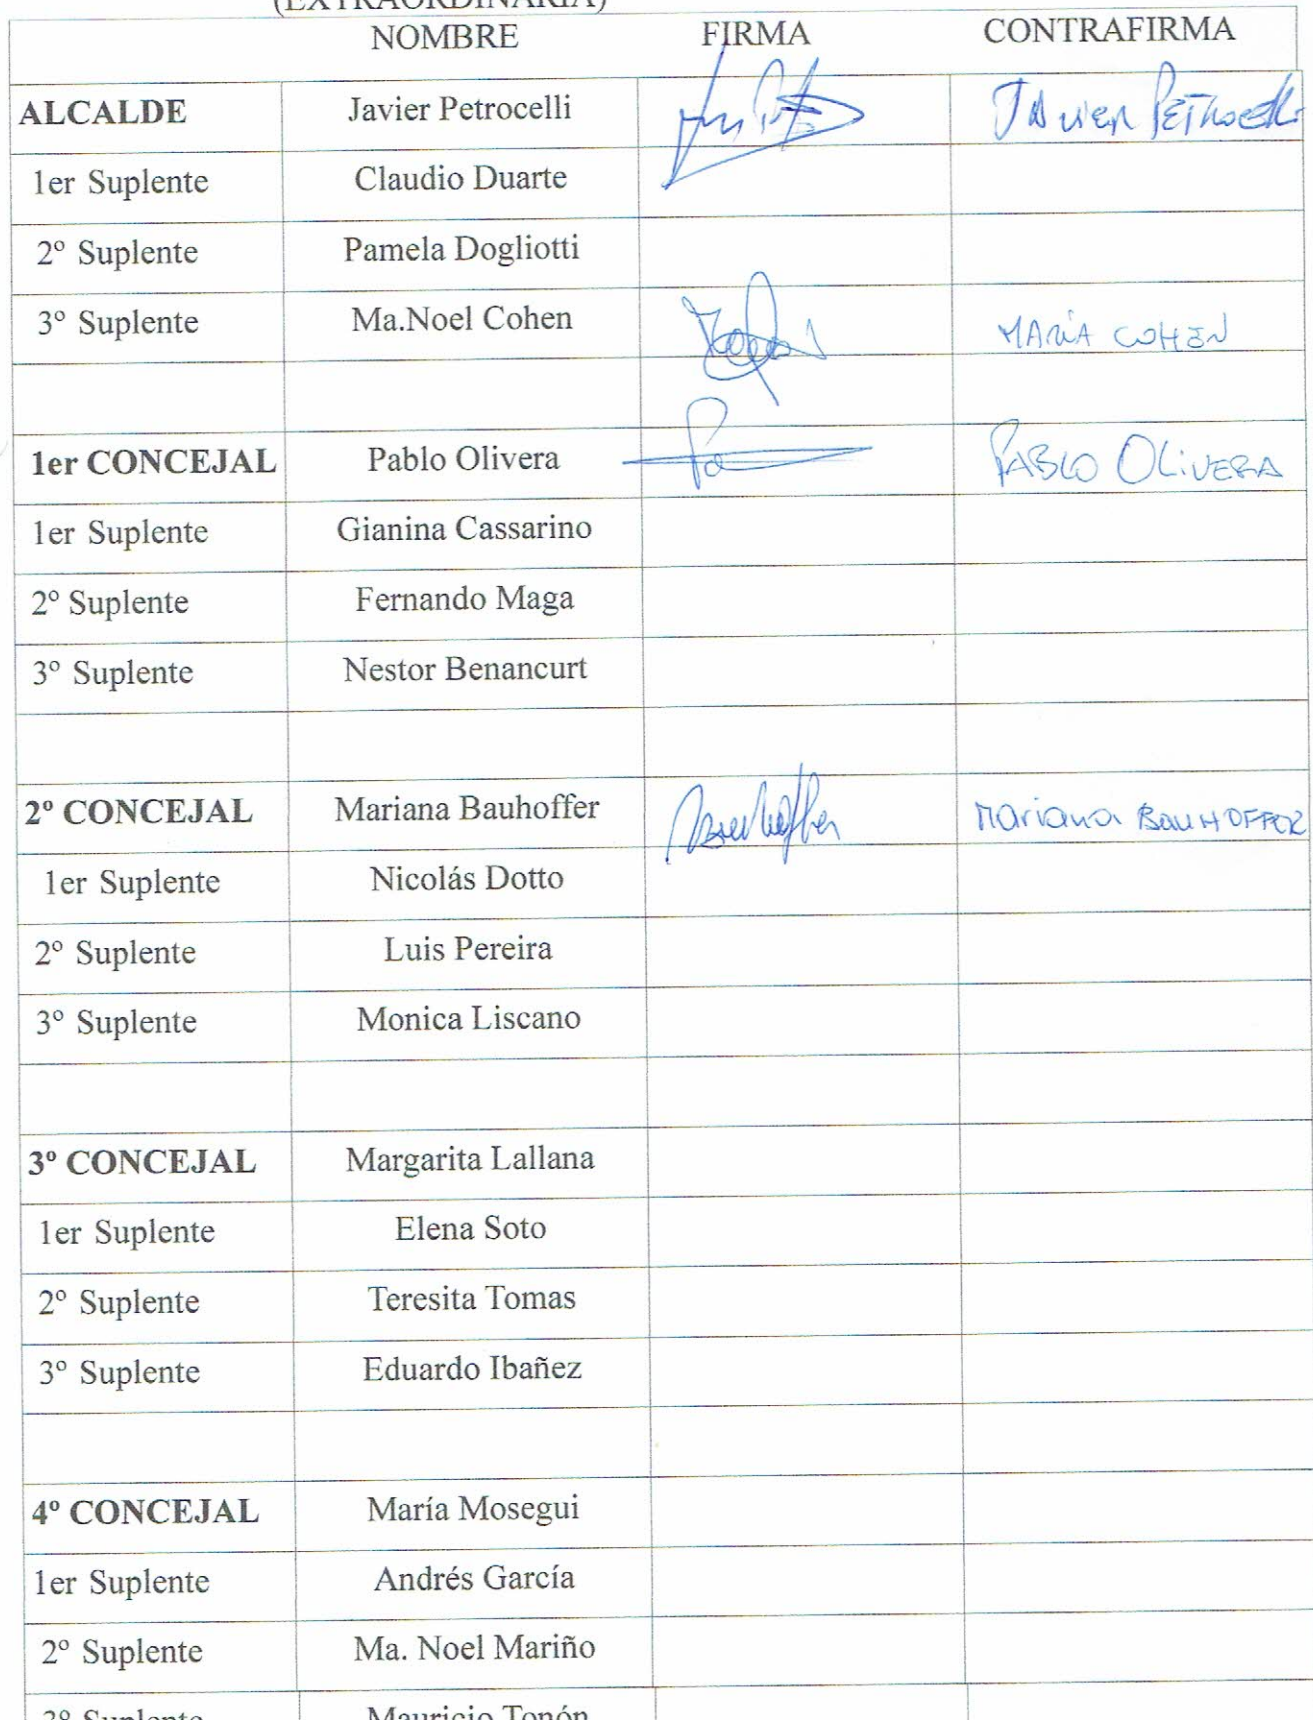 (EXTRAORDINARIA)
NOMBRE FIRMA CONTRAFIRMA
ALCALDE Javier Petrocelli Javier Petrocelli
1er Suplente Claudio Duarte
2º Suplente Pamela Dogliotti
3º Suplente Ma.Noel Cohen MARÍA COHEN
1er CONCEJAL Pablo Olivera PABLO OLiVERA
1er Suplente Gianina Cassarino
2º Suplente Fernando Maga
3º Suplente Nestor Benancurt
2º CONCEJAL Mariana Bauhoffer Bauhoffer Mariana BAUHOFFER
1er Suplente Nicolás Dotto
2º Suplente Luis Pereira
3º Suplente Monica Liscano
3º CONCEJAL Margarita Lallana
1er Suplente Elena Soto
2º Suplente Teresita Tomas
3º Suplente Eduardo Ibañez
4º CONCEJAL María Mosegui
1er Suplente Andrés García
2º Suplente Ma. Noel Mariño
3º Suplente Mauricio Tonón